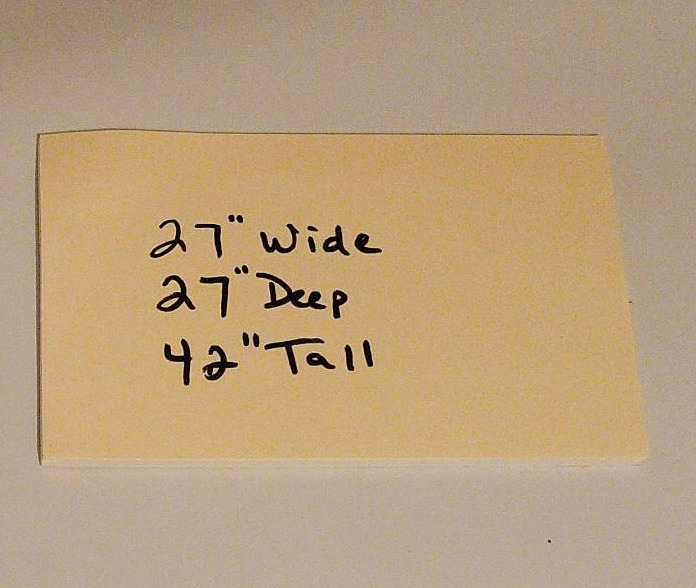 27" Wide
27" Deep
42" Tall